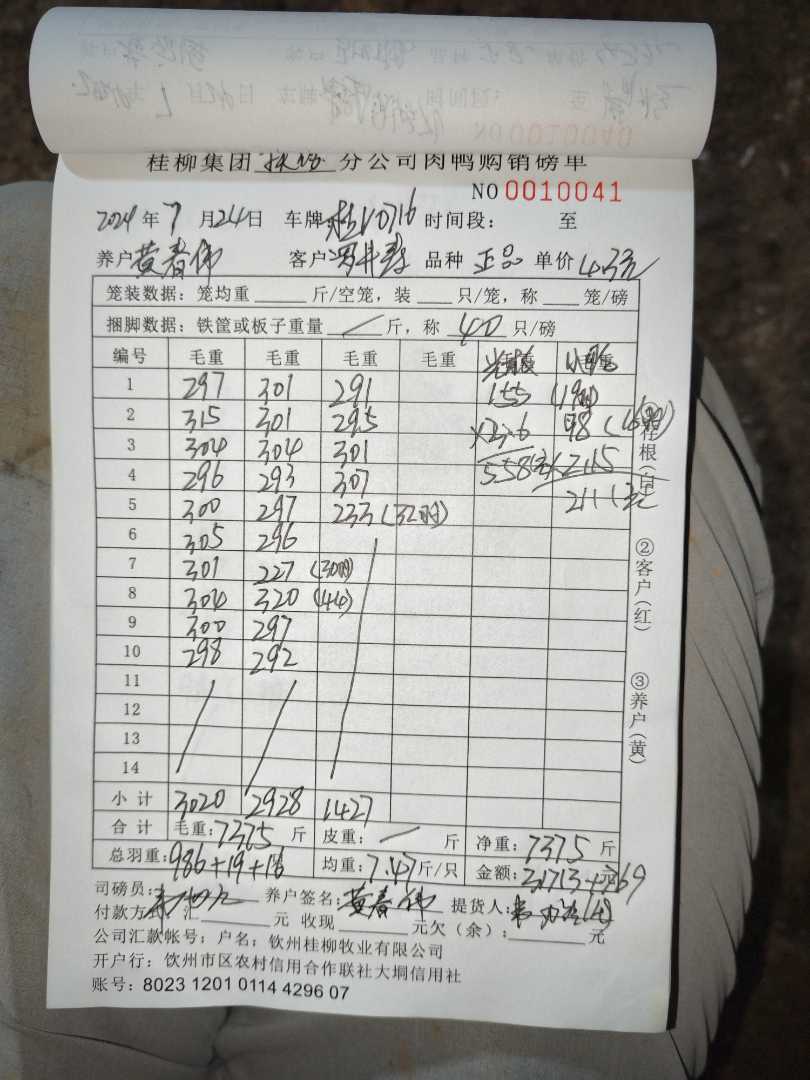 桂柳集团 分公司肉鸭购销磅单
NO 0010041
2024年 7 月 24日 车牌 桂 V0716 时间段： 至
养户 黄春伟 客户 品种 正品 单价
笼装数据：笼均重 斤/空笼，装 只/笼，称 笼/磅
捆脚数据：铁筐或板子重量 / 斤，称 40 只/磅
编号 毛重 毛重 毛重 毛重
1 297 301 291 155 (19只)
2 315 301 295 ×3.6 98 (16只)
3 304 304 301 558元 ×2.15
4 296 293 307 211元
5 300 297 233 (32只)
6 305 296
7 301 227 (30只)
8 304 320 (44)
9 300 297
10 298 292
11
12
13
14
小计 3020 2928 1427
合计 毛重：7375 斤 皮重： / 斤 净重：7375 斤
总羽重：986+19+16 均重：7.47斤/只 金额：31713+769
司磅员： 养户签名：黄春伟 提货人：
付款方式：汇 元 收现 元欠（余）： 元
公司汇款帐号；户名；钦州桂柳牧业有限公司
开户行：钦州市区农村信用合作联社大垌信用社
账号：8023 1201 0114 4296 07
桂根（白）
②客户（红）
③养户（黄）
NO 0010040